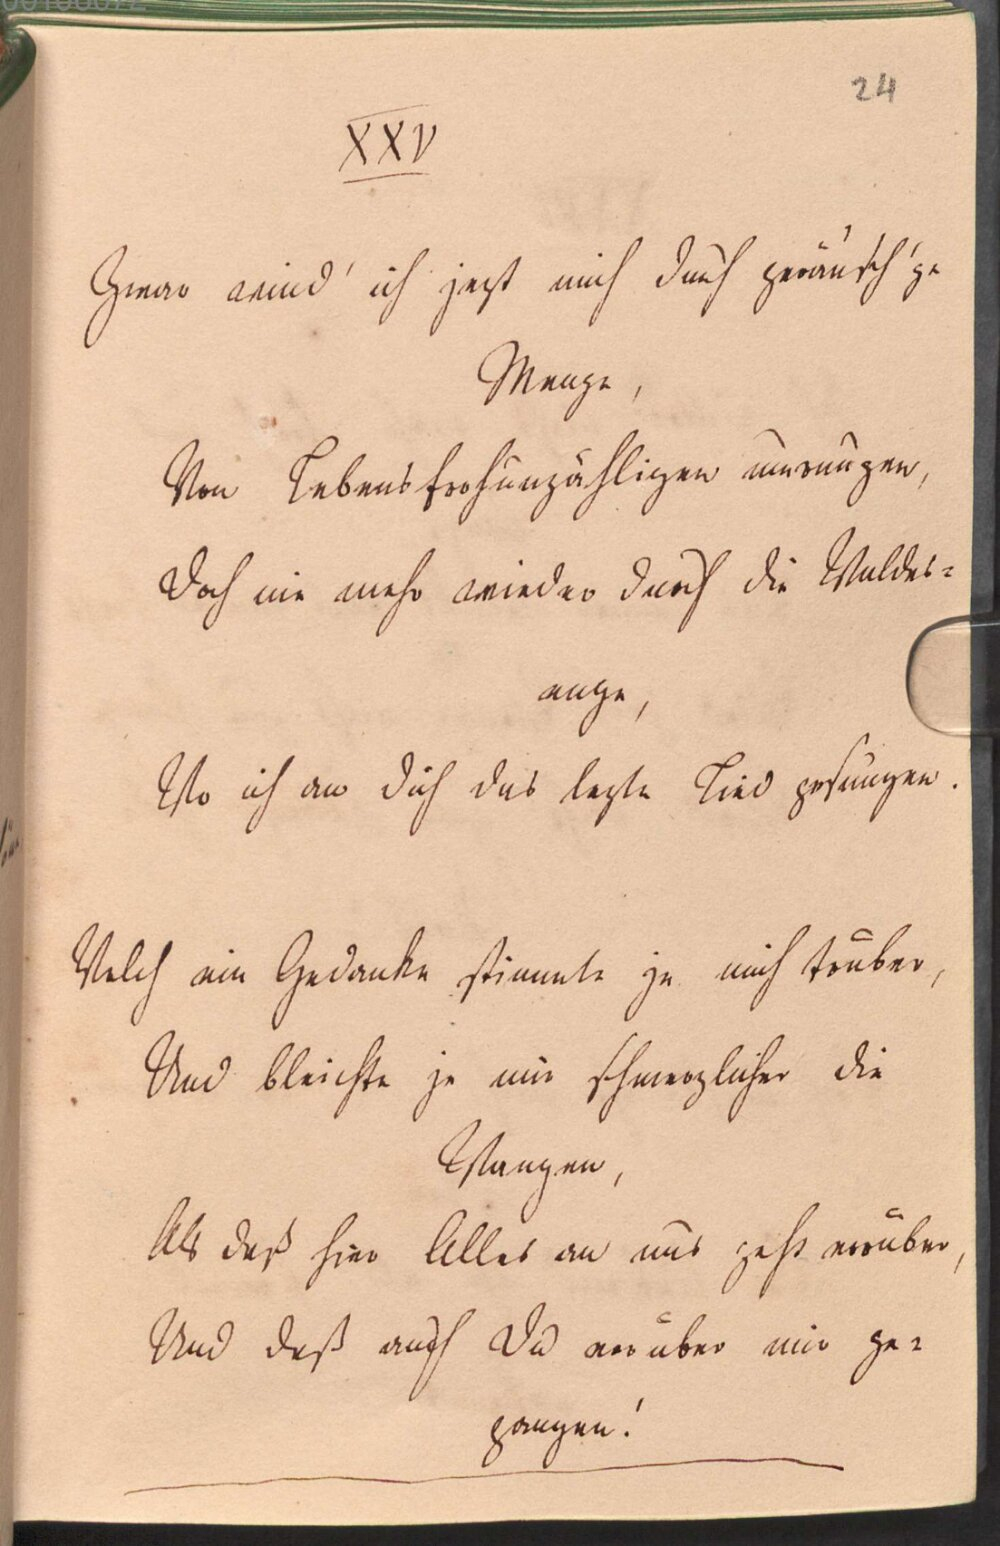 24
XXV
Zwar wind' ich jezt mich durch geräusch'ge
Menge,
Von Lebensfrohunzähligen umrungen,
Doch nie mehr wieder durch die Waldes=
enge,
Wo ich an dich das lezte Lied gesungen.
Welch ein Gedanke stimmte je mich trüber,
Und bleichte je mir schmerzlicher die
Wangen,
Als daß hier Alles an uns geht vorüber,
Und daß auch Du vorüber mir ge=
gangen!